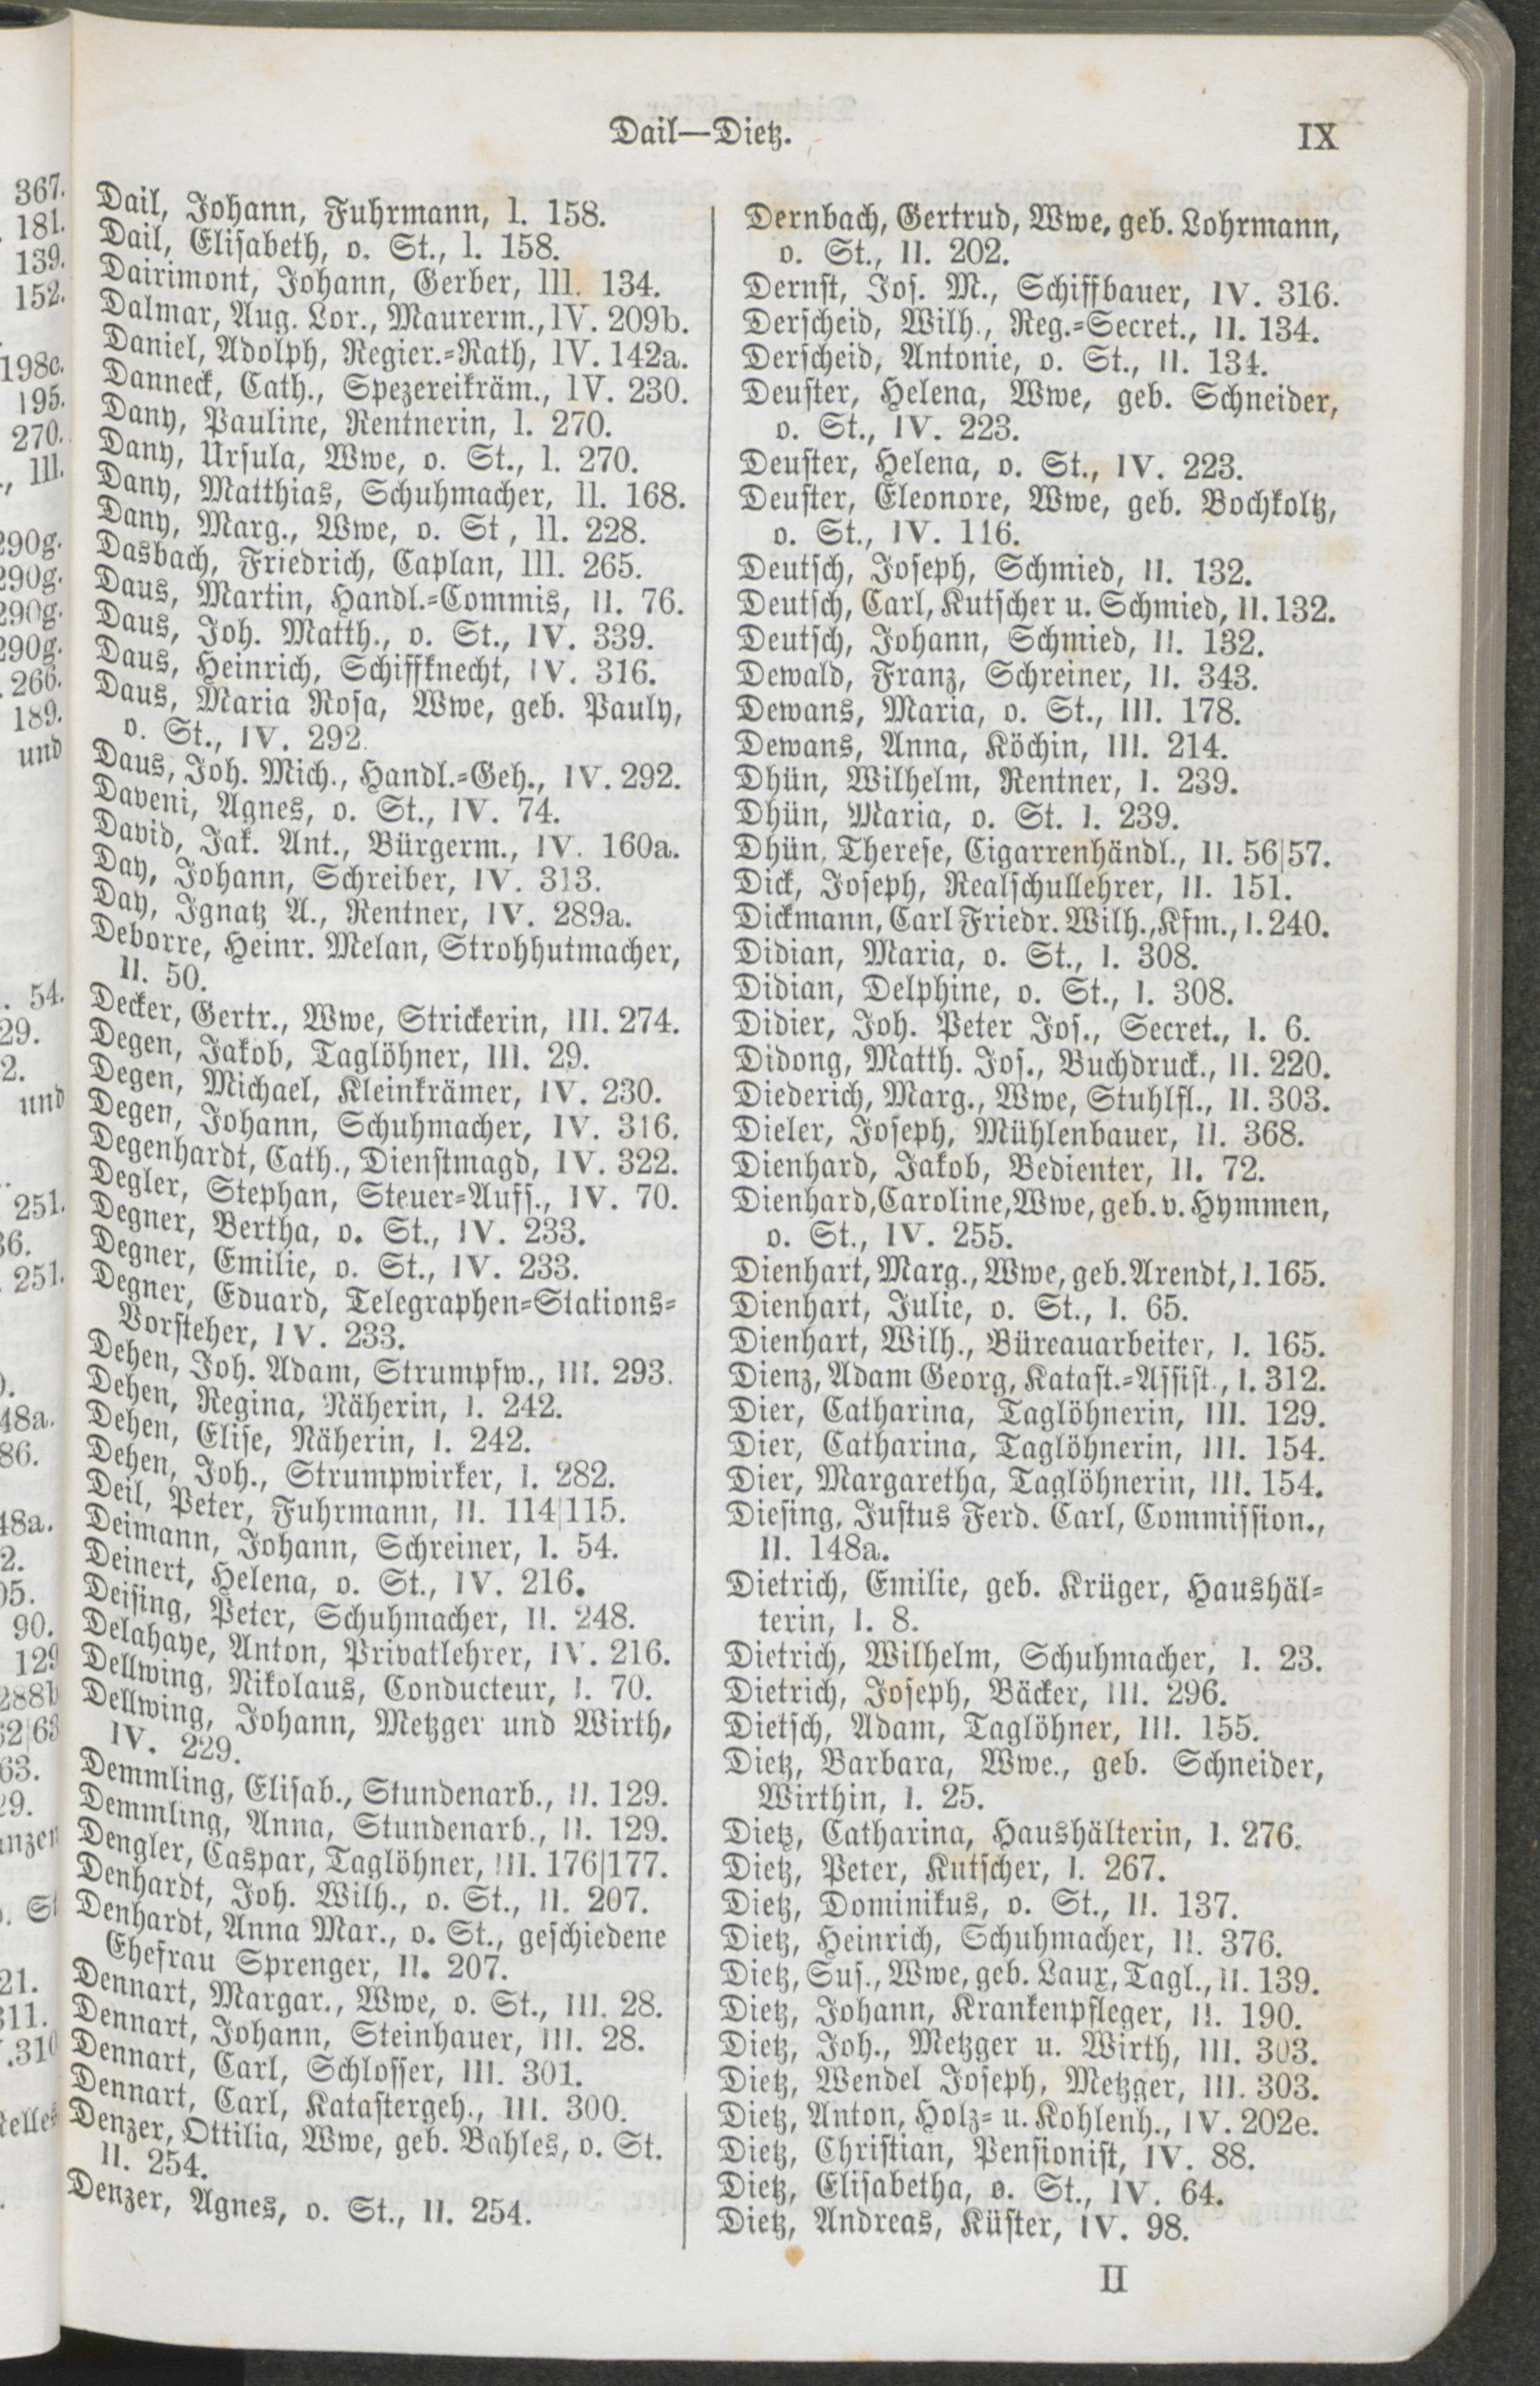 Dail—Dietz.
IX
Dail, Johann, Fuhrmann, I. 158.
Dail, Elisabeth, o. St., I. 158.
Dairimont, Johann, Gerber, III. 134.
Dalmar, Aug. Lor., Maurerm., IV. 209b.
Daniel, Adolph, Regier.=Rath, IV. 142a.
Danneck, Cath., Spezereikräm., IV. 230.
Dany, Pauline, Rentnerin, I. 270.
Dany, Ursula, Wwe, o. St., I. 270.
Dany, Matthias, Schuhmacher, II. 168.
Dany, Marg., Wwe, o. St, II. 228.
Dasbach, Friedrich, Caplan, III. 265.
Daus, Martin, Handl.=Commis, II. 76.
Daus, Joh. Matth., o. St., IV. 339.
Daus, Heinrich, Schiffknecht, IV. 316.
Daus, Maria Rosa, Wwe, geb. Pauly,
o. St., IV. 292.
Daus, Joh. Mich., Handl.=Geh., IV. 292.
Daveni, Agnes, o. St., IV. 74.
David, Jak. Ant., Bürgerm., IV. 160a.
Day, Johann, Schreiber, IV. 313.
Day, Ignatz A., Rentner, IV. 289a.
Deborre, Heinr. Melan, Strohhutmacher,
II. 50.
Decker, Gertr., Wwe, Strickerin, III. 274.
Degen, Jakob, Taglöhner, III. 29.
Degen, Michael, Kleinkrämer, IV. 230.
Degen, Johann, Schuhmacher, IV. 316.
Degenhardt, Cath., Dienstmagd, IV. 322.
Degler, Stephan, Steuer=Aufs., IV. 70.
Degner, Bertha, o. St., IV. 233.
Degner, Emilie, o. St., IV. 233.
Degner, Eduard, Telegraphen=Stations=
Vorsteher, IV. 233.
Dehen, Joh. Adam, Strumpfw., III. 293.
Dehen, Regina, Näherin, I. 242.
Dehen, Elise, Näherin, I. 242.
Dehen, Joh., Strumpwirker, I. 282.
Deil, Peter, Fuhrmann, II. 114|115.
Deimann, Johann, Schreiner, I. 54.
Deinert, Helena, o. St., IV. 216.
Deising, Peter, Schuhmacher, II. 248.
Delahaye, Anton, Privatlehrer, IV. 216.
Dellwing, Nikolaus, Conducteur, I. 70.
Dellwing, Johann, Metzger und Wirth,
IV. 229.
Demmling, Elisab., Stundenarb., II. 129.
Demmling, Anna, Stundenarb., II. 129.
Dengler, Caspar, Taglöhner, III. 176|177.
Denhardt, Joh. Wilh., o. St., II. 207.
Denhardt, Anna Mar., o. St., geschiedene
Ehefrau Sprenger, II. 207.
Dennart, Margar., Wwe, o. St., III. 28.
Dennart, Johann, Steinhauer, III. 28.
Dennart, Carl, Schlosser, III. 301.
Dennart, Carl, Katastergeh., III. 300.
Denzer, Ottilia, Wwe, geb. Bahles, o. St.
II. 254.
Denzer, Agnes, o. St., II. 254.
Dernbach, Gertrud, Wwe, geb. Lohrmann,
o. St., II. 202.
Dernst, Jos. M., Schiffbauer, IV. 316.
Derscheid, Wilh., Reg.=Secret., II. 134.
Derscheid, Antonie, o. St., II. 134.
Deuster, Helena, Wwe, geb. Schneider,
o. St., IV. 223.
Deuster, Helena, o. St., IV. 223.
Deuster, Eleonore, Wwe, geb. Bochkoltz,
o. St., IV. 116.
Deutsch, Joseph, Schmied, II. 132.
Deutsch, Carl, Kutscher u. Schmied, II. 132.
Deutsch, Johann, Schmied, II. 132.
Dewald, Franz, Schreiner, II. 343.
Dewans, Maria, o. St., III. 178.
Dewans, Anna, Köchin, III. 214.
Dhün, Wilhelm, Rentner, I. 239.
Dhün, Maria, o. St. I. 239.
Dhün, Therese, Cigarrenhändl., II. 56|57.
Dick, Joseph, Realschullehrer, II. 151.
Dickmann, Carl Friedr. Wilh., Kfm., I. 240.
Didian, Maria, o. St., I. 308.
Didian, Delphine, o. St., I. 308.
Didier, Joh. Peter Jos., Secret., I. 6.
Didong, Matth. Jos., Buchdruck., II. 220.
Diederich, Marg., Wwe, Stuhlfl., II. 303.
Dieler, Joseph, Mühlenbauer, II. 368.
Dienhard, Jakob, Bedienter, II. 72.
Dienhard, Caroline, Wwe, geb. v. Hymmen,
o. St., IV. 255.
Dienhart, Marg., Wwe, geb. Arendt, I. 165.
Dienhart, Julie, o. St., I. 65.
Dienhart, Wilh., Büreauarbeiter, I. 165.
Dienz, Adam Georg, Katast.=Assist., I. 312.
Dier, Catharina, Taglöhnerin, III. 129.
Dier, Catharina, Taglöhnerin, III. 154.
Dier, Margaretha, Taglöhnerin, III. 154.
Diesing, Justus Ferd. Carl, Commission.,
II. 148a.
Dietrich, Emilie, geb. Krüger, Haushäl=
terin, I. 8.
Dietrich, Wilhelm, Schuhmacher, I. 23.
Dietrich, Joseph, Bäcker, III. 296.
Dietsch, Adam, Taglöhner, III. 155.
Dietz, Barbara, Wwe., geb. Schneider,
Wirthin, I. 25.
Dietz, Catharina, Haushälterin, I. 276.
Dietz, Peter, Kutscher, I. 267.
Dietz, Dominikus, o. St., II. 137.
Dietz, Heinrich, Schuhmacher, II. 376.
Dietz, Sus., Wwe, geb. Laux, Tagl., II. 139.
Dietz, Johann, Krankenpfleger, II. 190.
Dietz, Joh., Metzger u. Wirth, III. 303.
Dietz, Wendel Joseph, Metzger, III. 303.
Dietz, Anton, Holz= u. Kohlenh., IV. 202e.
Dietz, Christian, Pensionist, IV. 88.
Dietz, Elisabetha, o. St., IV. 64.
Dietz, Andreas, Küster, IV. 98.
II